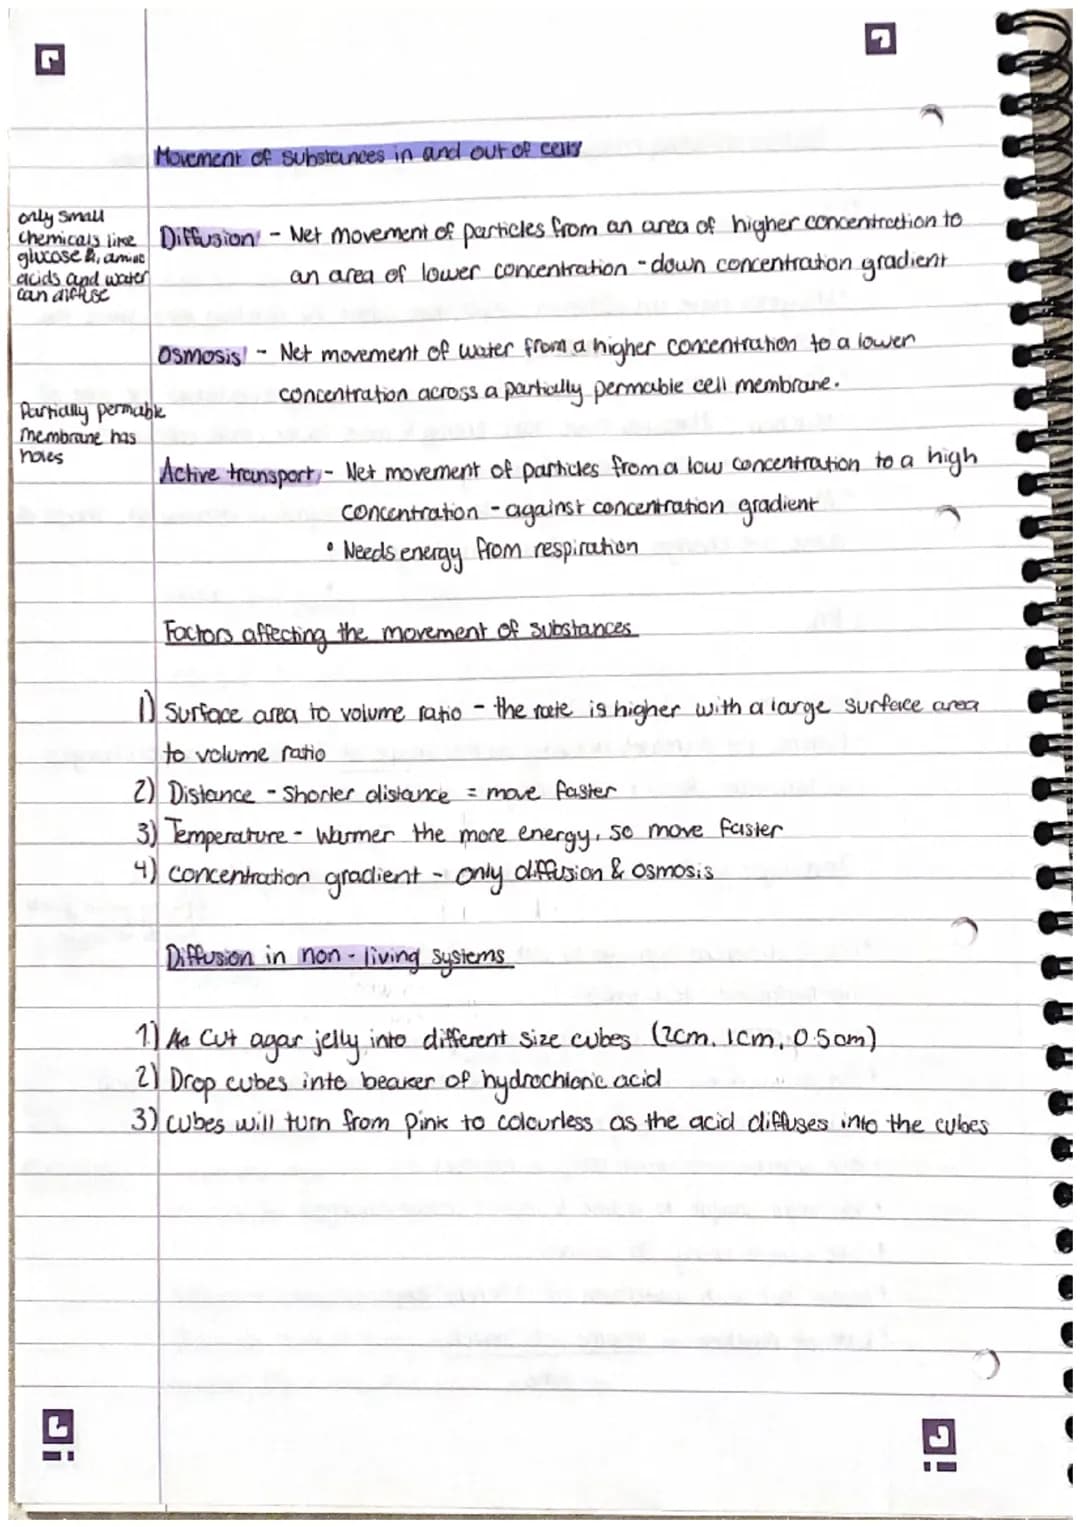 Movement of substances in and out of cells
only small
chemicals like
glucose &, amino
acids and water
can diffuse
Diffusion - Net movement of particles from an area of higher concentration to
an area of lower concentration - down concentration gradient
Osmosis - Net movement of water from a higher concentration to a lower
concentration across a partially permable cell membrane.
Partially permable
membrane has
holes
Active transport - Net movement of particles from a low concentration to a high
concentration - against concentration gradient
• Needs energy from respiration
Factors affecting the movement of substances
1) Surface area to volume ratio - the rate is higher with a large surface area
to volume ratio
2) Distance - Shorter distance = move faster
3) Temperature - Warmer the more energy, so move faster
4) concentration gradient - only diffusion & osmosis
Diffusion in non-living systems
1) Cut agar jelly into different size cubes (2cm, 1cm, 0.5cm)
2) Drop cubes into beaker of hydrochloric acid
3) cubes will turn from pink to colourless as the acid diffuses into the cubes